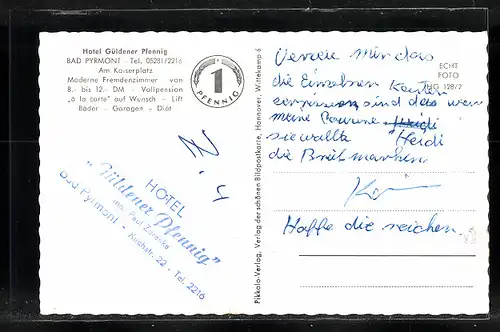 Hotel Güldener Pfennig
BAD PYRMONT - Tel. 05281/2216
Am Kaiserplatz
Moderne Fremdenzimmer von
8.- bis 12.- DM - Vollpension
„à la carte" auf Wunsch - Lift
Bäder - Garagen - Diät
1
PFENNIG
HOTEL
„Güldener Pfennig"
Inh. Paul
Bad Pyrmont - Kirchstr. 22 - Tel. 2216
Pikkolo-Verlag, Verlag der schönen Bildpostkarte, Hannover, Wittekamp 6
ECHT
FOTO
HG 128/2
mir das
die Einzelnen Karten
sind das wen
meine
sie wollte Heidi
die
Hoffe die reichen.